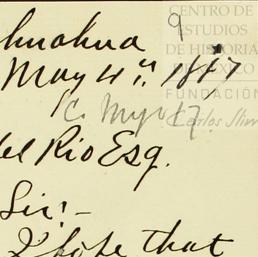 9
CENTRO DE
ESTUDIOS
DE HISTORIA
DE MÉXICO
FUNDACIÓN
Carlos Slim
huahua
May 4th 1887
C. Myo 17.
del Rio Esq.
Sir:-
I hope that